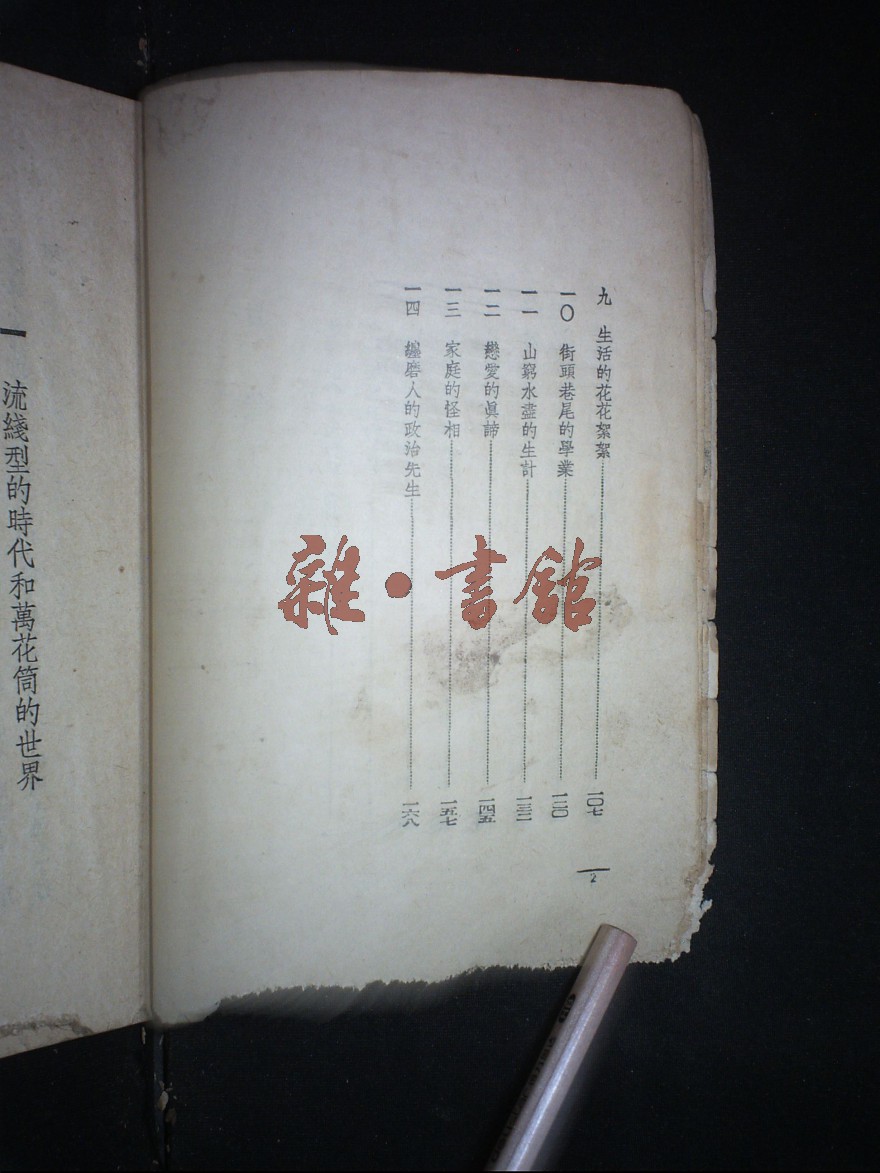 九　生活的花花絮絮………一〇七
一〇　街頭巷尾的學業………一二〇
一一　山窮水盡的生計………一三二
一二　戀愛的眞諦………一四五
一三　家庭的怪相………一五七
一四　纏磨人的政治先生………一六八
2
雜·書舘
一　流綫型的時代和萬花筒的世界